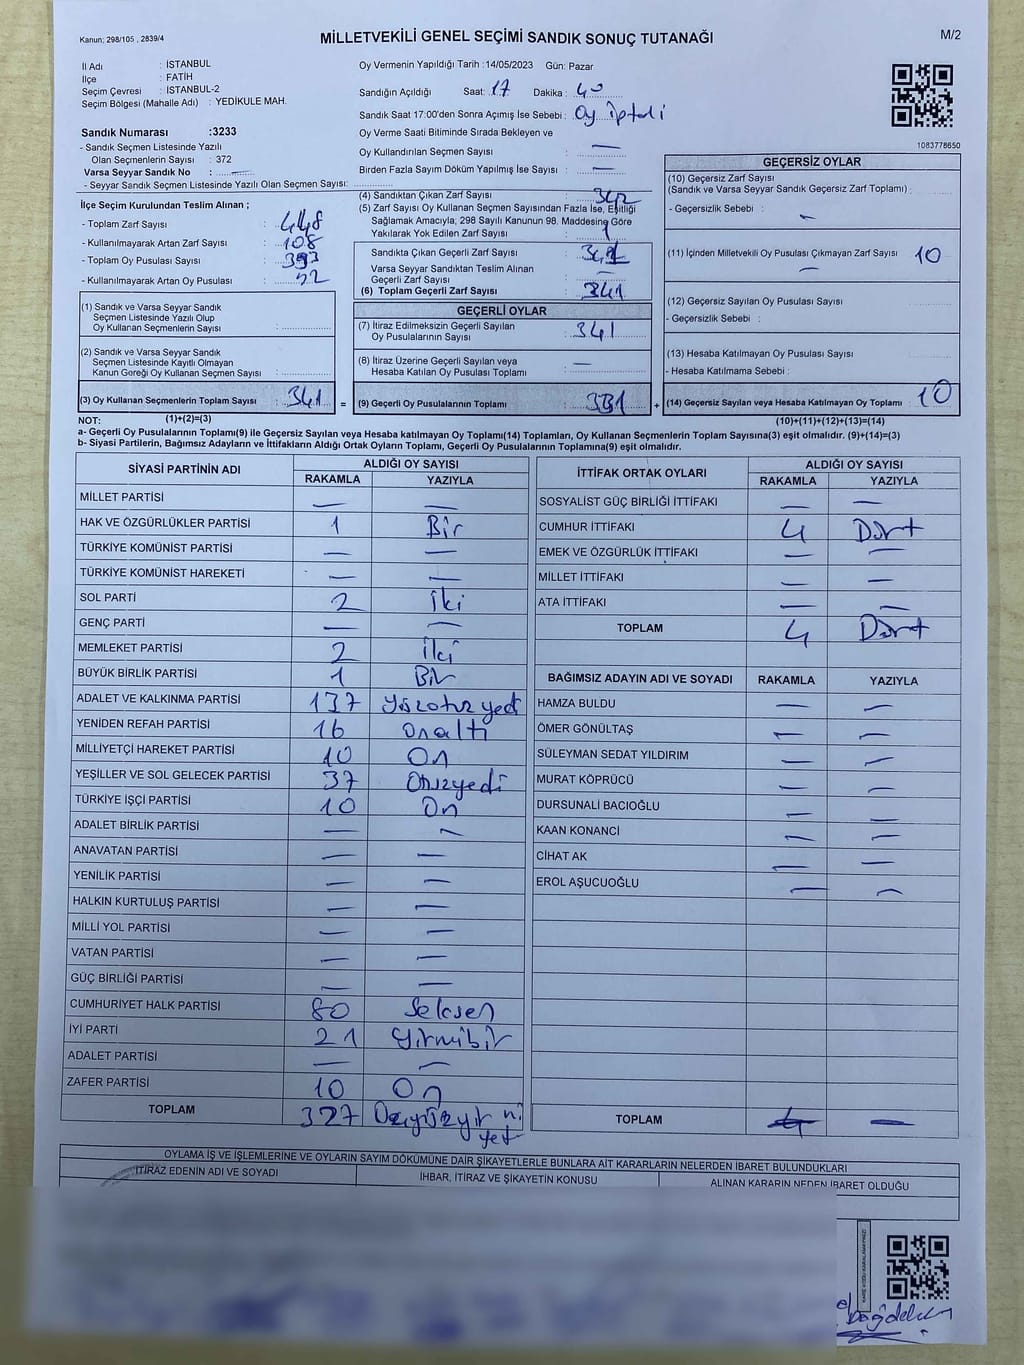 Kanun; 298/105 , 2839/4
MİLLETVEKİLİ GENEL SEÇİMİ SANDIK SONUÇ TUTANAĞI
M/2
İl Adı : İSTANBUL
İlçe : FATİH
Seçim Çevresi : İSTANBUL-2
Seçim Bölgesi (Mahalle Adı) : YEDİKULE MAH.
Sandık Numarası :3233
- Sandık Seçmen Listesinde Yazılı
Olan Seçmenlerin Sayısı : 372
Varsa Seyyar Sandık No : —
- Seyyar Sandık Seçmen Listesinde Yazılı Olan Seçmen Sayısı:
Oy Vermenin Yapıldığı Tarih :14/05/2023 Gün: Pazar
Sandığın Açıldığı Saat: 17 Dakika : 40
Sandık Saat 17:00'den Sonra Açılmış İse Sebebi : Oy İptali
Oy Verme Saati Bitiminde Sırada Bekleyen ve
Oy Kullandırılan Seçmen Sayısı : —
Birden Fazla Sayım Döküm Yapılmış İse Sayısı : —
1083778650
İlçe Seçim Kurulundan Teslim Alınan ;
- Toplam Zarf Sayısı : 448
- Kullanılmayarak Artan Zarf Sayısı : 108
- Toplam Oy Pusulası Sayısı : 393
- Kullanılmayarak Artan Oy Pusulası : 52
(1) Sandık ve Varsa Seyyar Sandık
Seçmen Listesinde Yazılı Olup
Oy Kullanan Seçmenlerin Sayısı :
(2) Sandık ve Varsa Seyyar Sandık
Seçmen Listesinde Kayıtlı Olmayan
Kanun Gereği Oy Kullanan Seçmen Sayısı :
(3) Oy Kullanan Seçmenlerin Toplam Sayısı : 341 =
(4) Sandıktan Çıkan Zarf Sayısı : 342
(5) Zarf Sayısı Oy Kullanan Seçmen Sayısından Fazla İse, Eşitliği
Sağlamak Amacıyla; 298 Sayılı Kanunun 98. Maddesine Göre
Yakılarak Yok Edilen Zarf Sayısı : 1
Sandıkta Çıkan Geçerli Zarf Sayısı : 341
Varsa Seyyar Sandıktan Teslim Alınan
Geçerli Zarf Sayısı : —
(6) Toplam Geçerli Zarf Sayısı : 341
GEÇERLİ OYLAR
(7) İtiraz Edilmeksizin Geçerli Sayılan
Oy Pusulalarının Sayısı : 341
(8) İtiraz Üzerine Geçerli Sayılan veya
Hesaba Katılan Oy Pusulası Toplamı : —
(9) Geçerli Oy Pusulalarının Toplamı : 331 +
GEÇERSİZ OYLAR
(10) Geçersiz Zarf Sayısı
(Sandık ve Varsa Seyyar Sandık Geçersiz Zarf Toplamı) :
- Geçersizlik Sebebi : —
(11) İçinden Milletvekili Oy Pusulası Çıkmayan Zarf Sayısı : 10
—
(12) Geçersiz Sayılan Oy Pusulası Sayısı :
- Geçersizlik Sebebi :
(13) Hesaba Katılmayan Oy Pusulası Sayısı :
- Hesaba Katılmama Sebebi :
(14) Geçersiz Sayılan veya Hesaba Katılmayan Oy Toplamı : 10
NOT: (1)+(2)=(3) (10)+(11)+(12)+(13)=(14)
a- Geçerli Oy Pusulalarının Toplamı(9) ile Geçersiz Sayılan veya Hesaba katılmayan Oy Toplamı(14) Toplamları, Oy Kullanan Seçmenlerin Toplam Sayısına(3) eşit olmalıdır. (9)+(14)=(3)
b- Siyasi Partilerin, Bağımsız Adayların ve İttifakların Aldığı Ortak Oyların Toplamı, Geçerli Oy Pusulalarının Toplamına(9) eşit olmalıdır.
SİYASİ PARTİNİN ADI ALDIĞI OY SAYISI
RAKAMLA YAZIYLA
MİLLET PARTİSİ — —
HAK VE ÖZGÜRLÜKLER PARTİSİ 1 Bir
TÜRKİYE KOMÜNİST PARTİSİ — —
TÜRKİYE KOMÜNİST HAREKETİ — —
SOL PARTİ 2 İki
GENÇ PARTİ — —
MEMLEKET PARTİSİ 2 İki
BÜYÜK BİRLİK PARTİSİ 1 Bir
ADALET VE KALKINMA PARTİSİ 137 Yüzotuzyedi
YENİDEN REFAH PARTİSİ 16 Onaltı
MİLLİYETÇİ HAREKET PARTİSİ 10 On
YEŞİLLER VE SOL GELECEK PARTİSİ 37 Otuzyedi
TÜRKİYE İŞÇİ PARTİSİ 10 On
ADALET BİRLİK PARTİSİ — —
ANAVATAN PARTİSİ — —
YENİLİK PARTİSİ — —
HALKIN KURTULUŞ PARTİSİ — —
MİLLİ YOL PARTİSİ — —
VATAN PARTİSİ — —
GÜÇ BİRLİĞİ PARTİSİ — —
CUMHURİYET HALK PARTİSİ 80 Seksen
İYİ PARTİ 21 Yirmibir
ADALET PARTİSİ — —
ZAFER PARTİSİ 10 On
TOPLAM 327
İTTİFAK ORTAK OYLARI ALDIĞI OY SAYISI
RAKAMLA YAZIYLA
SOSYALİST GÜÇ BİRLİĞİ İTTİFAKI — —
CUMHUR İTTİFAKI 4 Dört
EMEK VE ÖZGÜRLÜK İTTİFAKI — —
MİLLET İTTİFAKI — —
ATA İTTİFAKI — —
TOPLAM 4 Dört
BAĞIMSIZ ADAYIN ADI VE SOYADI RAKAMLA YAZIYLA
HAMZA BULDU — —
ÖMER GÖNÜLTAŞ — —
SÜLEYMAN SEDAT YILDIRIM — —
MURAT KÖPRÜCÜ — —
DURSUNALİ BACIOĞLU — —
KAAN KONANCİ — —
CİHAT AK — —
EROL AŞUCUOĞLU — —
TOPLAM — —
OYLAMA İŞ VE İŞLEMLERİNE VE OYLARIN SAYIM DÖKÜMÜNE DAİR ŞİKAYETLERLE BUNLARA AİT KARARLARIN NELERDEN İBARET BULUNDUKLARI
İTİRAZ EDENİN ADI VE SOYADI İHBAR, İTİRAZ VE ŞİKAYETİN KONUSU ALINAN KARARIN NEDEN İBARET OLDUĞU